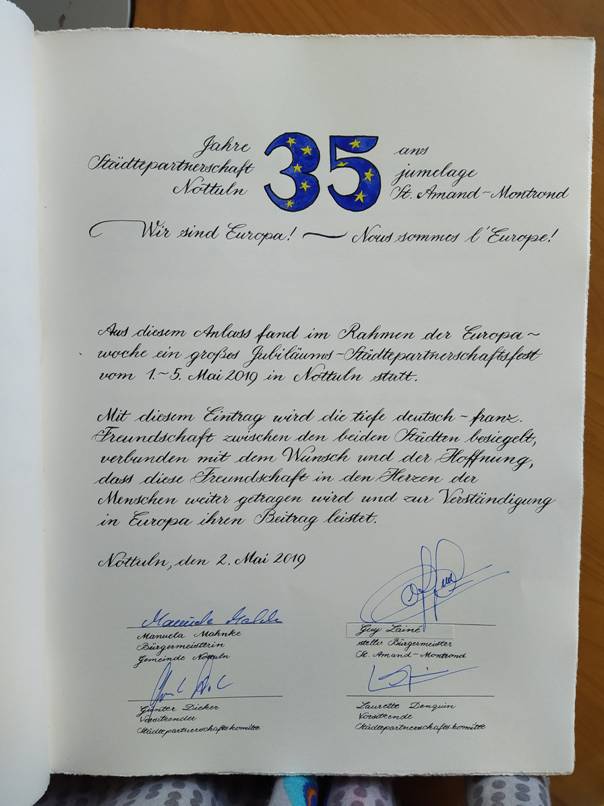 Jahre
Städtepartnerschaft
Nottuln
35
ans
jumelage
St. Amand-Montrond
Wir sind Europa! ~ Nous sommes l'Europe!
Aus diesem Anlass fand im Rahmen der Europa~
woche ein großes Jubiläums-Städtepartnerschaftsfest
vom 1.~5. Mai 2019 in Nottuln statt.
Mit diesem Eintrag wird die tiefe deutsch-franz.
Freundschaft zwischen den beiden Städten besiegelt,
verbunden mit dem Wunsch und der Hoffnung,
dass diese Freundschaft in den Herzen der
Menschen weiter getragen wird und zur Verständigung
in Europa ihren Beitrag leistet.
Nottuln, den 2. Mai 2019
Manuela Mahnke
Bürgermeisterin
Gemeinde Nottuln
Guy Lainé
stellv. Bürgermeister
St. Amand-Montrond
Günter Dieker
Vorsitzender
Städtepartnerschaftskomitee
Laurette Denquin
Vorsitzende
Städtepartnerschaftskomitee